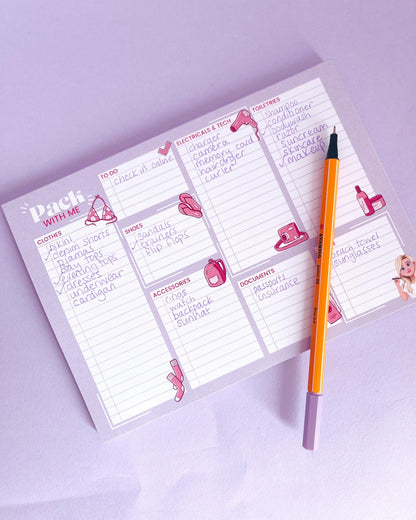 Pack
WITH ME
TO DO
check in online
ELECTRICALS & TECH
charger
camera
memory card
hairdryer
curler
TOILETRIES
shampoo
conditioner
bodywash
razor
suncream
skincare
makeup
CLOTHES
bikini
denim shorts
pjamas
day tops
evening tops
dresses
underwear
cardigan
SHOES
sandals
trainers
flip flops
ACCESSORIES
rings
watch
backpack
sunhat
DOCUMENTS
passports
insurance
beach towel
sunglasses